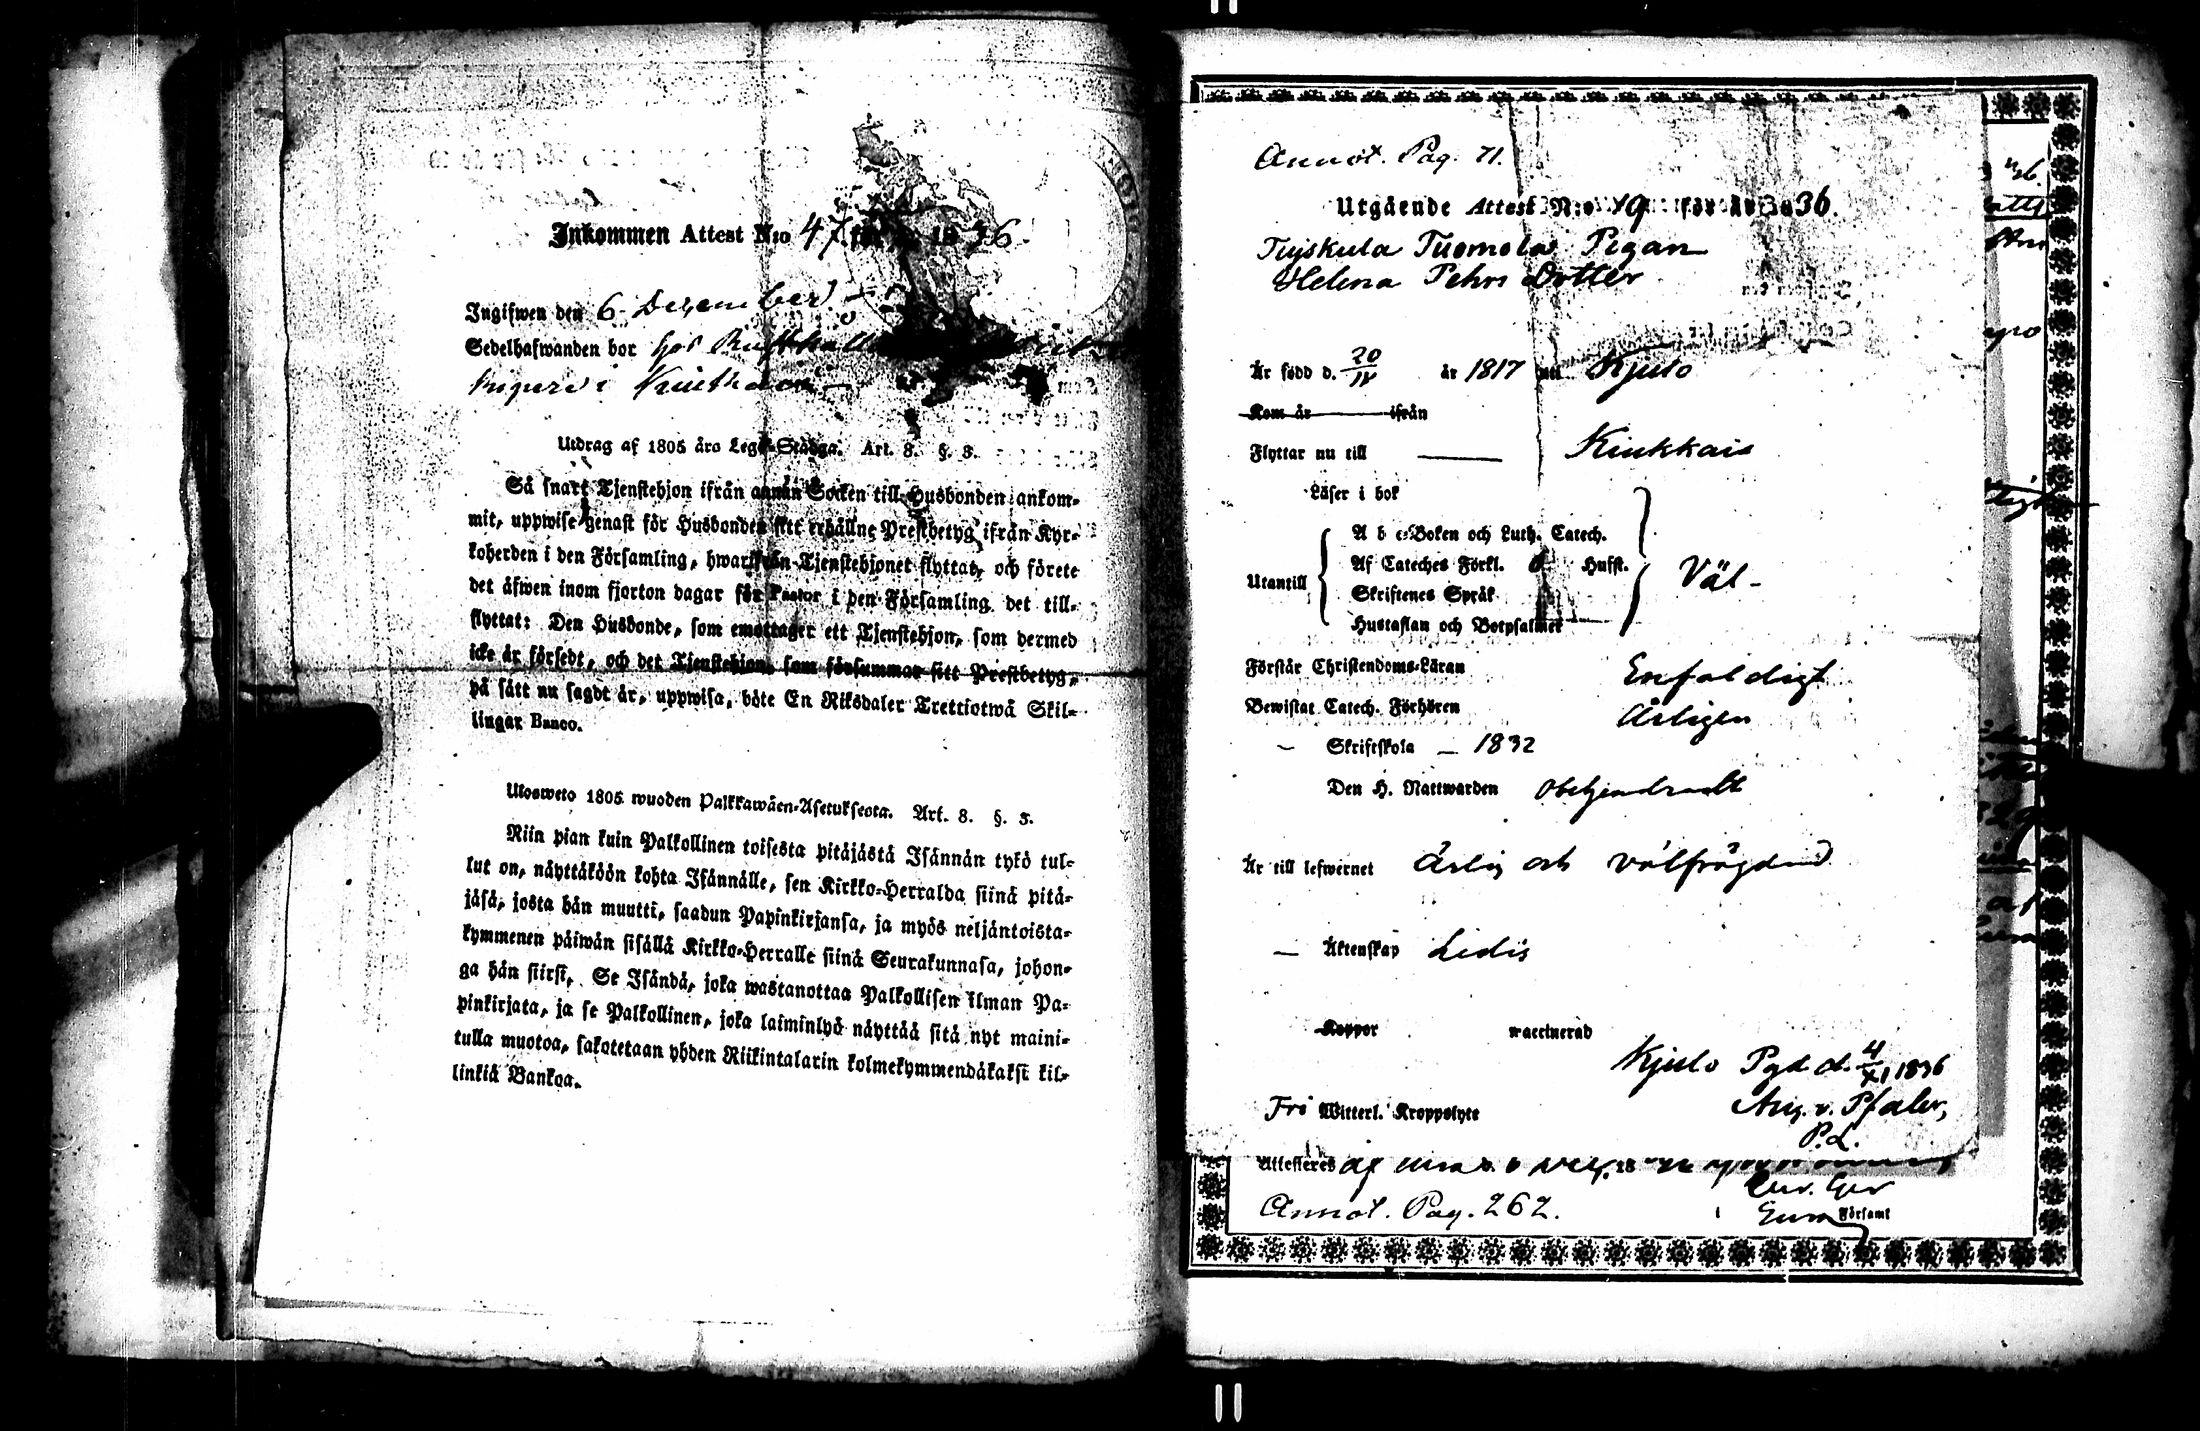 Inkommen Attest N:o 47 för år 1836.
Ingifwen den 6 December
Sedelhafwanden bor hos
i
Utdrag af 1805 års Lego-Stadga. Art. 8. §. 3.
Så snart Tjenstehjon ifrån annan Socken till Husbonden ankom-
mit, uppwise genast för Husbonden sitt erhållne Prestbetyg ifrån Kyr-
koherden i den Församling, hwarifrån Tjenstehjonet flyttat, och förete
det äfwen inom fjorton dagar för Pastor i den Församling det till-
flyttat: Den Husbonde, som emottager ett Tjenstehjon, som dermed
icke är försedt, och det Tjenstehjon, som försummar sitt Prestbetyg,
på sätt nu sagdt är, uppwisa, böte En Riksdaler Trettiotwå Skil-
lingar Banco.
Ulosweto 1805 wuoden Palkkawäen-Asetuksesta. Art. 8. §. 3.
Niin pian kuin Palkollinen toisesta pitäjästä Isännän tykö tul-
lut on, näyttäköön kohta Isännälle, sen Kirkko-Herralda siinä pitä-
jäsä, josta hän muutti, saadun Papinkirjansa, ja myös neljäntoista-
kymmenen päiwän sisällä Kirkko-Herralle siinä Seurakunnasa, johon-
ga hän siirsi. Se Isändä, joka wastanottaa Palkollisen ilman Pa-
pinkirjata, ja se Palkollinen, joka laiminlyö näyttää sitä nyt maini-
tulla muotoa, sakotetaan yhden Riikintalarin kolmekymmendäkaksi kil-
linkiä Bankoa.
Annot. Pag. 71.
Utgående Attest N:o 19 för år 1836.
Tuiskula Tuomola Pigan
Helena Pehrs Dotter
Är född d. 20/12 år 1817 uti Kjulo
Kom år ifrån
Flyttar nu till Kiukkais
Läser i bok
A b c-Boken och Luth. Catech.
Af Cateches Förkl. 6 Hufst.
Utantill Väl
Skriftenes Språk
Hustaflan och Botpsalmer
Förstår Christendoms-Läran Enfaldigt
Bewistat Catech. Förhören Årligen
— Skriftskola — 1832
Den H. Nattwarden obehindradt
Är till lefwernet Ärlig och välfrägdad
— Äktenskap Ledig
Koppor waccinerad
Kjulo Pgd d. 4/XI 1836
Fri Witterl. Kroppslyte Aug. v. Pfaler,
P.L.
Attesteres af
Annot. Pag. 262.
Eura Församl